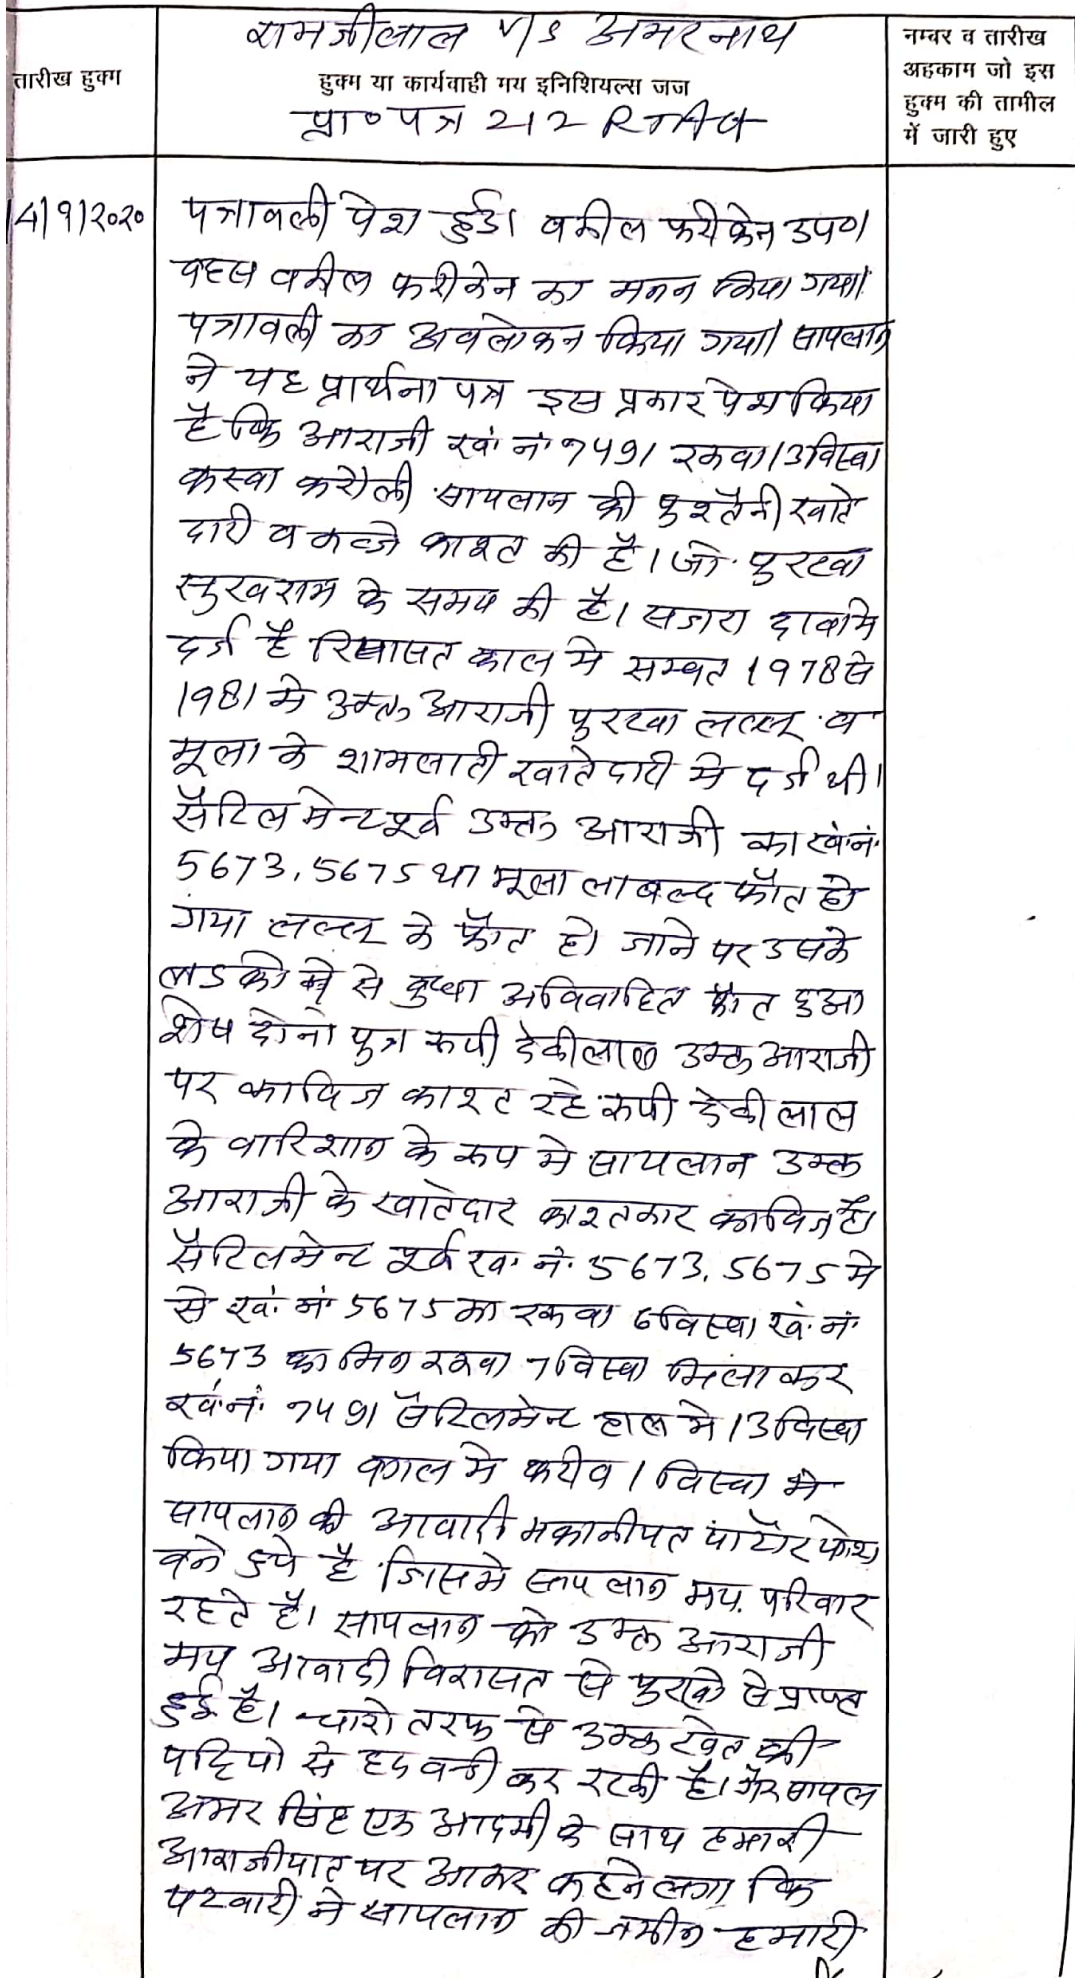 रामजीलाल V/S अमरनाथ
तारीख हुक्म
हुक्म या कार्यवाही मय इनिशियल्स जज
नम्बर व तारीख
अहकाम जो इस
हुक्म की तामील
में जारी हुए
प्रा० पत्र 212 RTAct
14/9/2020
पत्रावली पेश हुई। वकील फरीकेन उप०।
वहस वकील फरीकेन का मनन किया गया।
पत्रावली का अवलोकन किया गया। सायलान
ने यह प्रार्थना पत्र इस प्रकार पेश किया
है कि आराजी खं नं 7491 रकवा 13 विस्वा
कस्वा करौली सायलान की पुश्तैनी खाते
दारी व कब्जे काश्त की है। जो पुरखा
सुखराम के समय की है। सजरा दावा मे
दर्ज है रियासत काल मे सम्वत 1978 से
1981 मे उक्त आराजी पुरखा लल्लू व
मूला के शामलाती खातेदारी मे दर्ज थी।
सैटिलमेन्ट पूर्व उक्त आराजी का खं नं
5673, 5675 था मूला लाबल्द फौत हो
गया लल्लू के फौत हो जाने पर उसके
लडको मे से अविवाहित फौत हुआ
शेष दोनो पुत्र रूपी डेकीलाल उक्त आराजी
पर काविज काश्त रहे रूपी डेकीलाल
के वारिशान के रूप मे सायलान उक्त
आराजी के खातेदार काश्तकार काविज है।
सैटिलमेन्ट पूर्व ख नं 5673, 5675 मे
से खं नं 5675 का रकवा 6 विस्वा खं नं
5673 का मिन रकवा 7 विस्वा मिलाकर
खं नं 7491 सैटिलमेन्ट हाल मे 13 विस्वा
किया गया वगल मे करीव 1 विस्वा मे
सायलान की आवादी मकानीयत पाटौरपोश
वने हुये है जिसमे सायलान मय परिवार
रहते है। सायलान को उक्त आराजी
मय आवादी विरासत से पुरखो से प्राप्त
हुई है। चारो तरफ से उक्त खेत की
पट्टियो से हदवन्दी कर रखी है। गैरसायल
अमर सिंह एक आदमी के साथ हमारी
आराजीयात पर आकर कहने लगा कि
पटवारी ने सायलान की जमीन हमारी